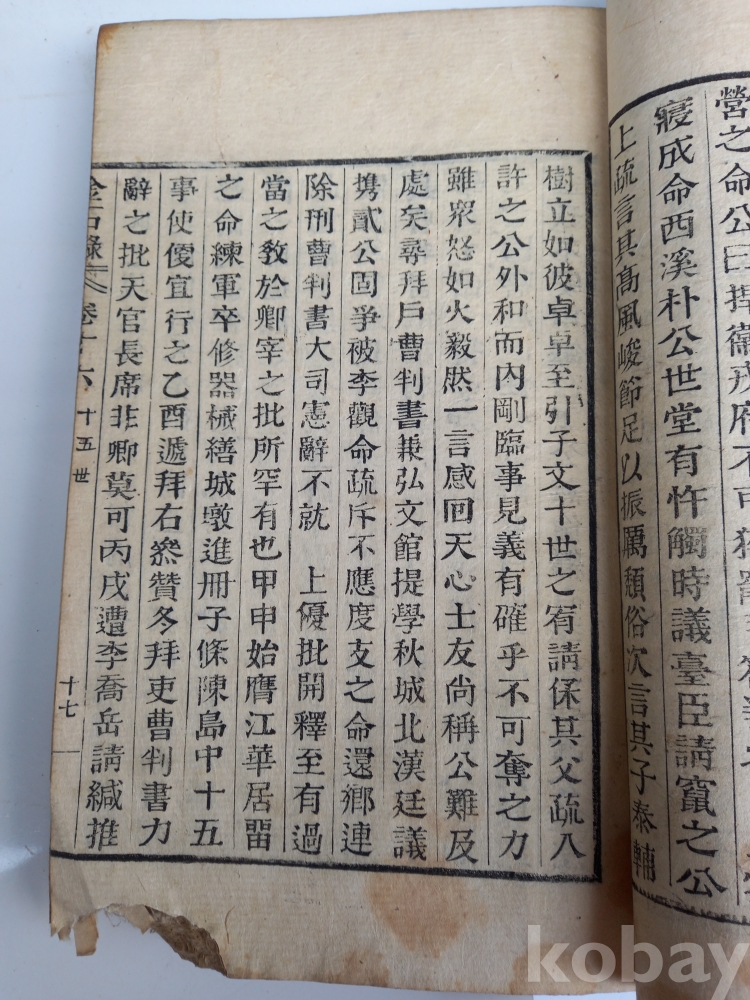 營之命公曰
寢成命西溪朴公世堂有忤觸時議臺臣請竄之公
上疏言其高風峻節足以振厲頹俗次言其子泰輔
樹立如彼卓卓至引子文十世之宥請保其父疏入
許之公外和而內剛臨事見義有確乎不可奪之力
雖衆怒如火毅然一言感回天心士友尚稱公難及
處矣尋拜戶曹判書兼弘文館提學秋城北漢廷議
携貳公固爭被李觀命疏斥不應度支之命還鄕連
除刑曹判書大司憲辭不就 上優批開釋至有過
當之敎於卿宰之批所罕有也甲申始膺江華居留
之命練軍卒修器械繕城墩進冊子條陳島中十五
事使便宜行之乙酉遞拜右叅贊冬拜吏曹判書力
辭之批天官長席非卿莫可丙戌遭李喬岳請緘推
金石錄 卷十六 十五世 十七
kobay